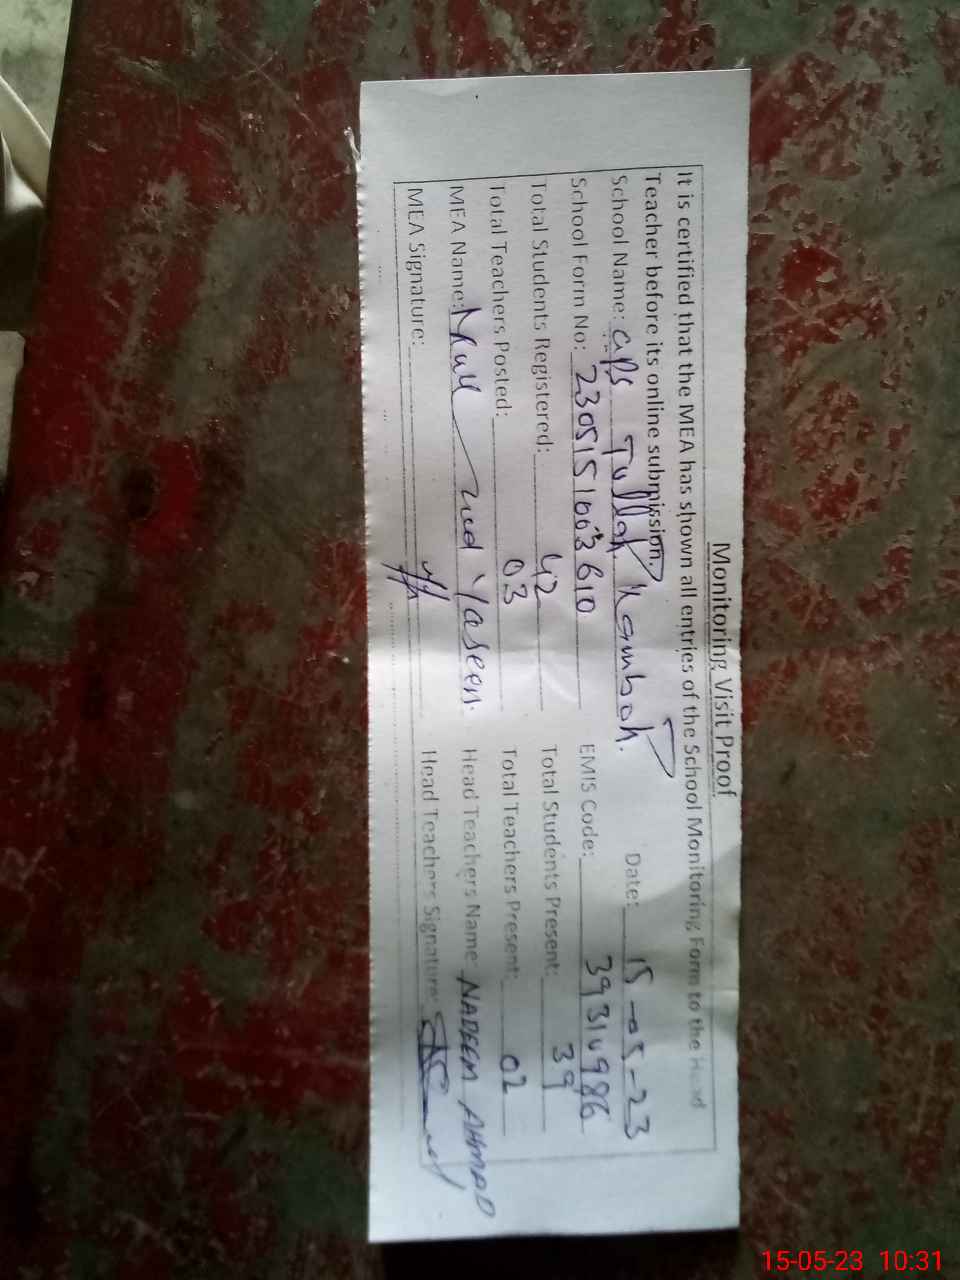 Monitoring Visit Proof
It is certified that the MEA has shown all entries of the School Monitoring Form to the Head
Teacher before its online submission.
School Name: GPS Tullah Kamboh. Date: 15-05-23
School Form No: EMIS Code:
Total Students Registered: 42 Total Students Present: 39
Total Teachers Posted: 03 Total Teachers Present: 02
MEA Name: Yaseen. Head Teachers Name: NADEEM AHMAD
MEA Signature: Head Teachers Signature:
15-05-23 10:31